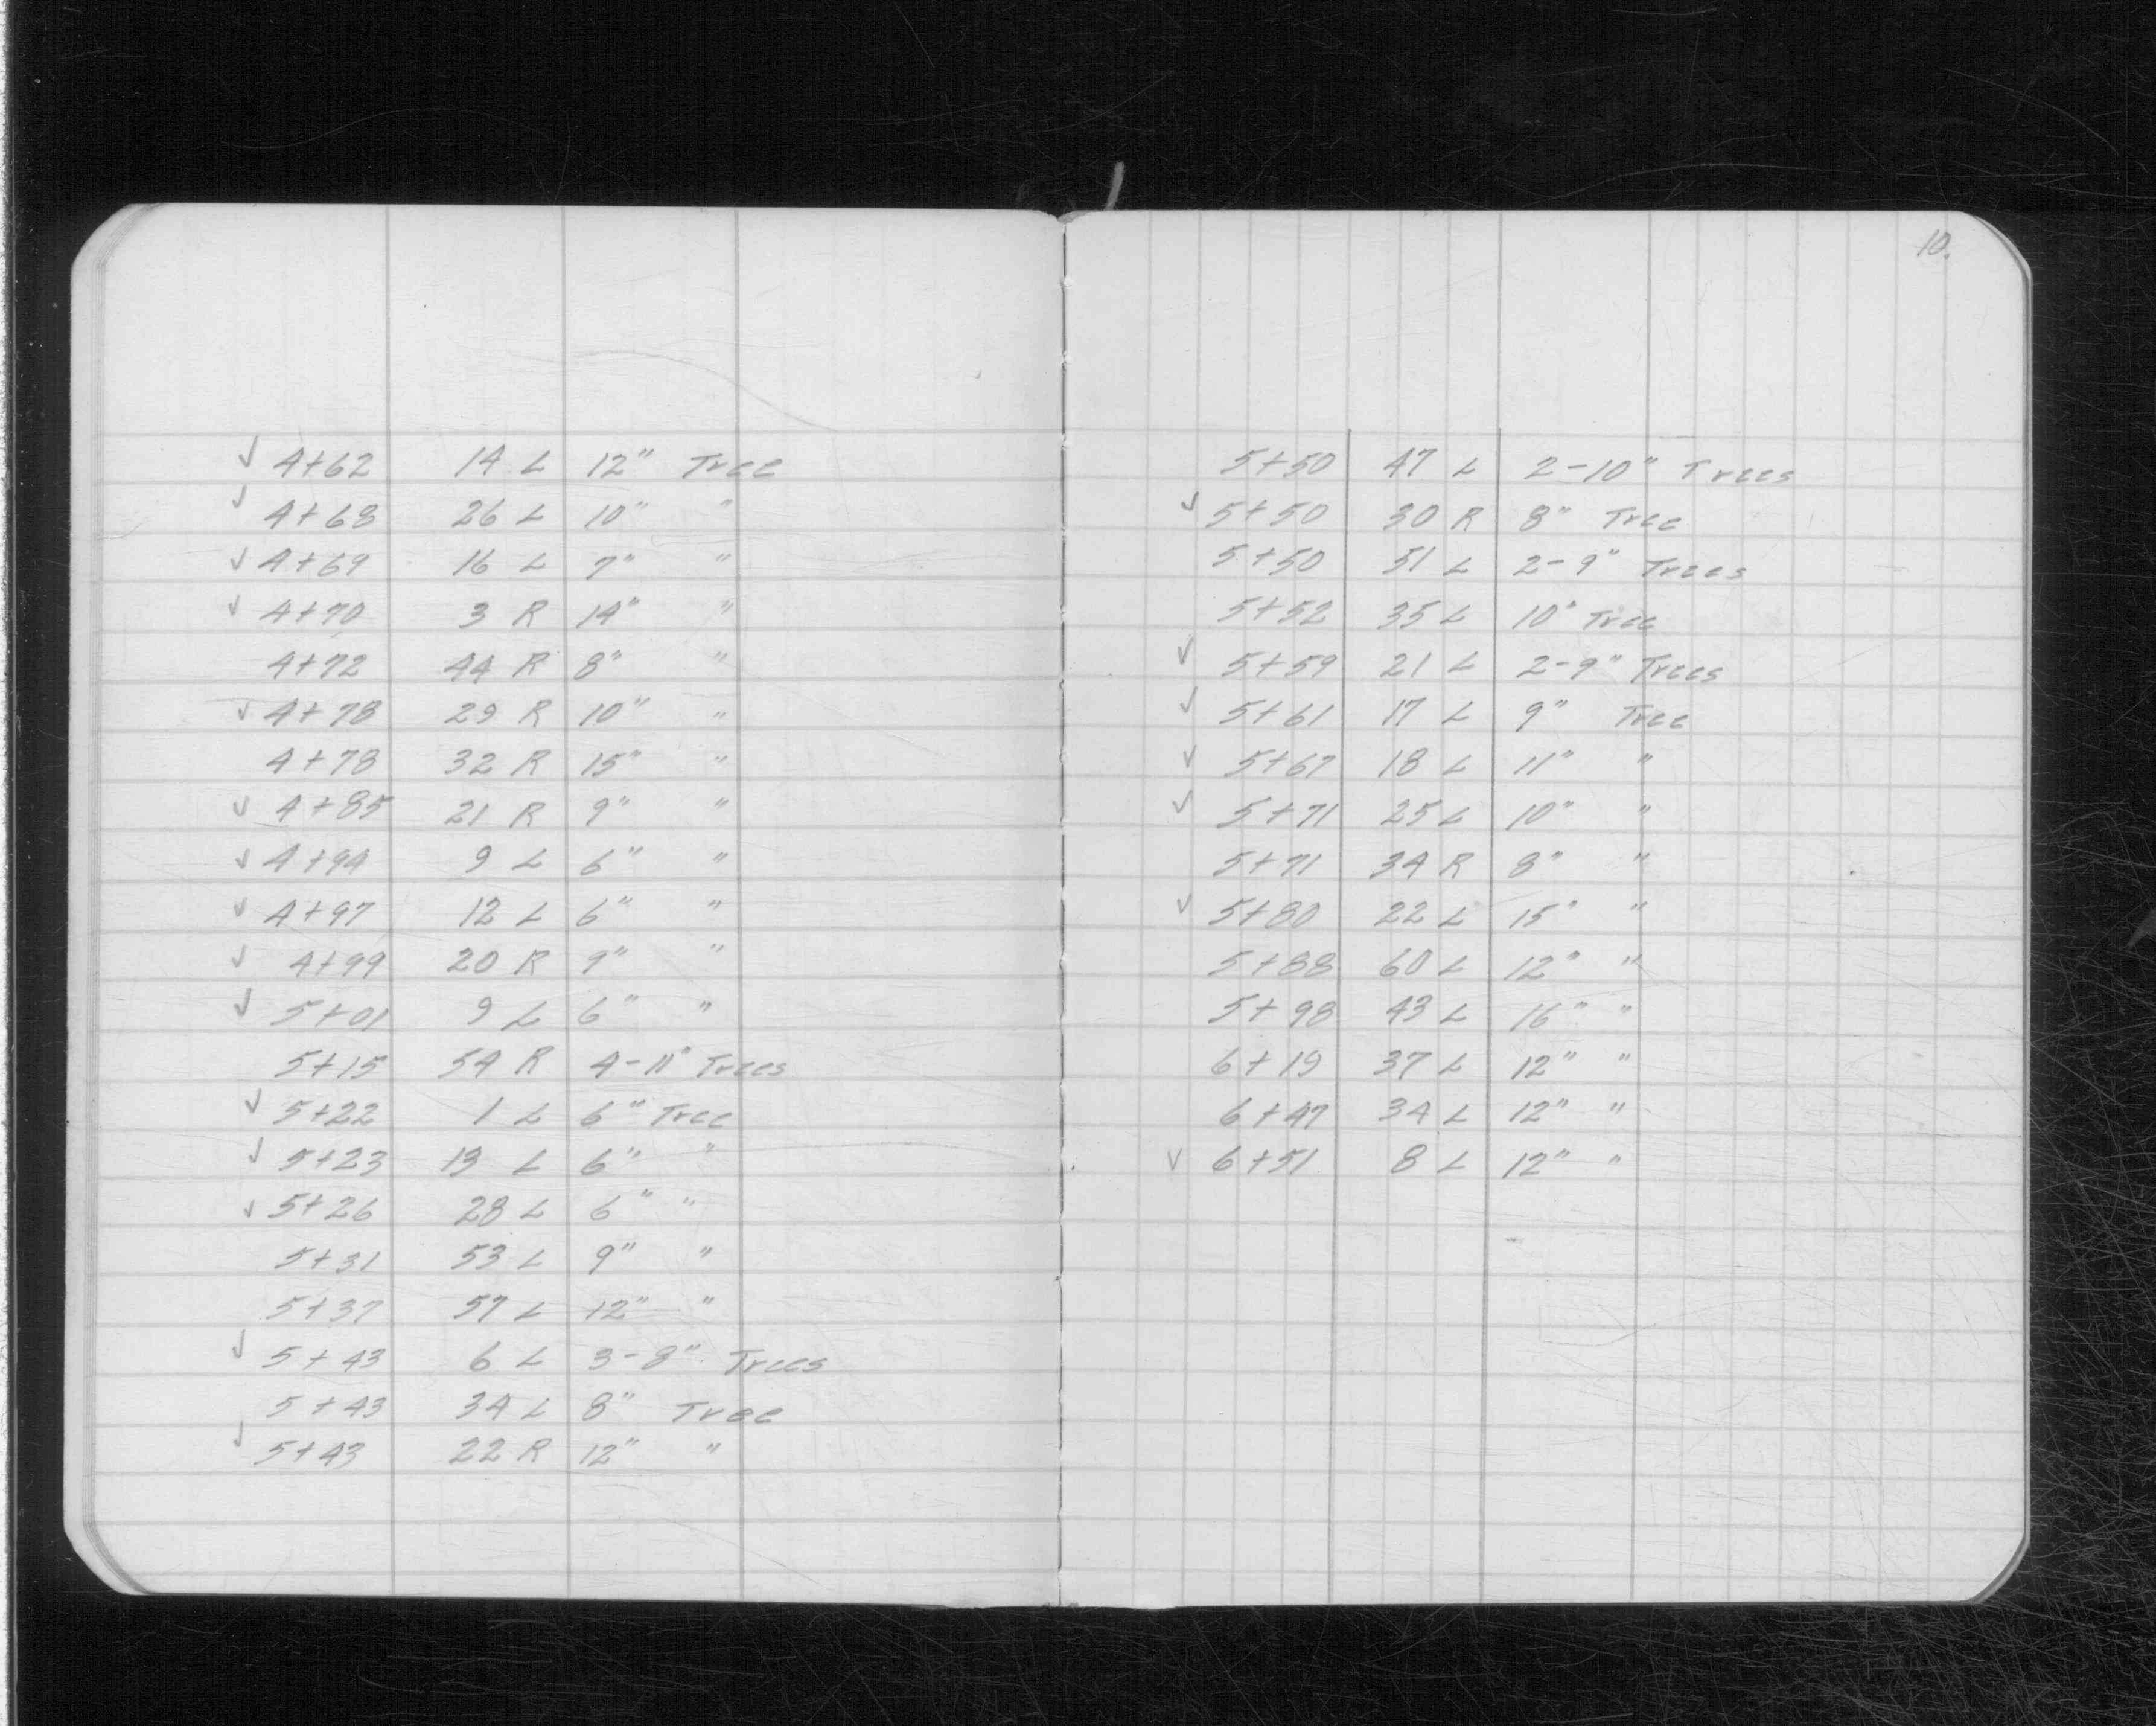 10.
✓ 4+62 14 L 12" Tree
✓ 4+68 26 L 10" "
✓ 4+69 16 L 7" "
✓ 4+70 3 R 14" "
4+72 44 R 8" "
✓ 4+78 29 R 10" "
4+78 32 R 15" "
✓ 4+85 21 R 9" "
✓ 4+94 9 L 6" "
✓ 4+97 12 L 6" "
✓ 4+99 20 R 9" "
✓ 5+01 9 L 6" "
5+15 54 R 4-11" Trees
✓ 5+22 1 L 6" Tree
✓ 5+23 13 L 6" "
✓ 5+26 28 L 6" "
5+31 53 L 9" "
5+37 57 L 12" "
✓ 5+43 6 L 3-8" Trees
5+43 34 L 8" Tree
✓ 5+43 22 R 12" "
5+50 47 L 2-10" Trees
✓ 5+50 30 R 8" Tree
5+50 51 L 2-9" Trees
5+52 35 L 10" Tree
✓ 5+59 21 L 2-9" Trees
✓ 5+61 17 L 9" Tree
✓ 5+67 18 L 11" "
✓ 5+71 25 L 10" "
5+71 34 R 8" "
✓ 5+80 22 L 15" "
5+88 60 L 12" "
5+98 43 L 16" "
6+19 37 L 12" "
6+47 34 L 12" "
✓ 6+51 8 L 12" "